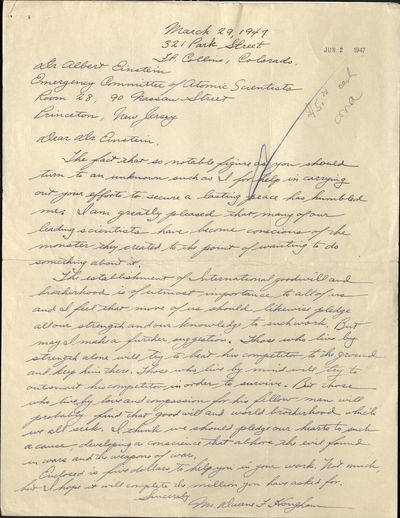 March 29, 1947
321 Park Street
Ft. Collins, Colorado.
JUN 2 1947
Dr Albert Einstein
Emergency Committee of Atomic Scientists
Room 28, 90 Nassau Street
Princeton, New Jersey
$5.00 cash
Dear Dr Einstein,
The fact that so notable figure as you should
turn to an unknown such as I for help in carrying
out your efforts to secure a lasting peace has humbled
me. I am greatly pleased that many of our
leading scientists have become conscious of the
monster they created to the point of wanting to do
something about it.
The establishment of International goodwill and
brotherhood is of utmost importance to all of us
and I feel that more of us should likewise pledge
all our strength and our knowledge to such work. But
may I make a further suggestion. Those who live by
strength alone will try to beat his competitor to the ground
and keep him there. Those who live by mind will try to
outsmart his competitor in order to survive. But those
who live by love and compassion for his fellow man will
probably find that good will and world brotherhood which
we all seek. I think we should pledge our hearts to such
a cause - developing a conscience that abhors the evil found
in wars and the weapons of war.
Enclosed is five dollars to help you in your work. Not much,
but I hope it will complete the million you have asked for.
Sincerely
Mr Duane F.